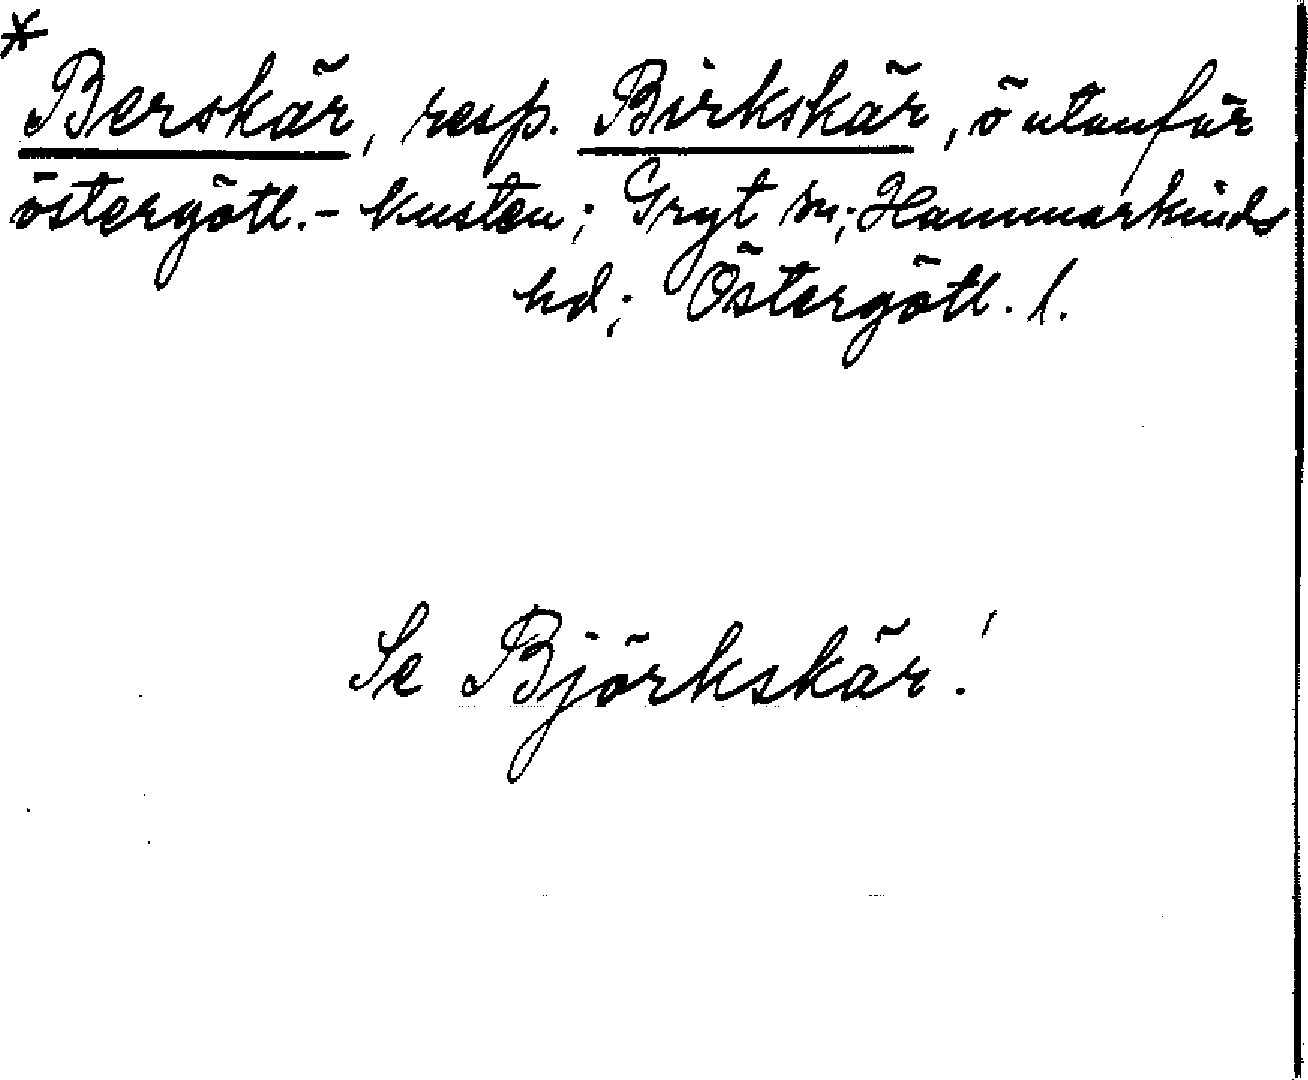 *
Berskär, resp. Birkskär, ö utanför
östergötl.- kusten; Gryt sn; Hammarkinds
hd; Östergötl. l.
Se Björkskär!